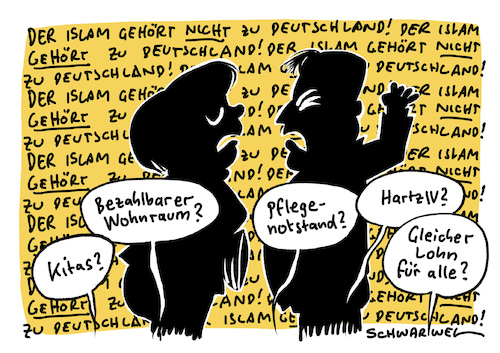 DER ISLAM GEHÖRT NICHT ZU DEUTSCHLAND! DER ISLAM
GEHÖRT ZU DEUTSCHLAND! DER ISLAM GEHÖRT NICHT
ZU DEUTSCHLAND! ZU DEUTSCHLAND!
DER ISLAM GEHÖRT DER ISLAM
GEHÖRT ZU NICHT
ZU DEUTSCHLAND!
DER ISLAM GEHÖRT ISLAM
GEHÖRT
Bezahlbarer
Wohnraum?
Pflege-
notstand?
Hartz IV?
Kitas?
Gleicher
Lohn
für alle?
GEHÖRT ZU DEUTSCHLAND!
ZU DEUTSCHLAND! ISLAM GEHÖRT
SCHWARWEL